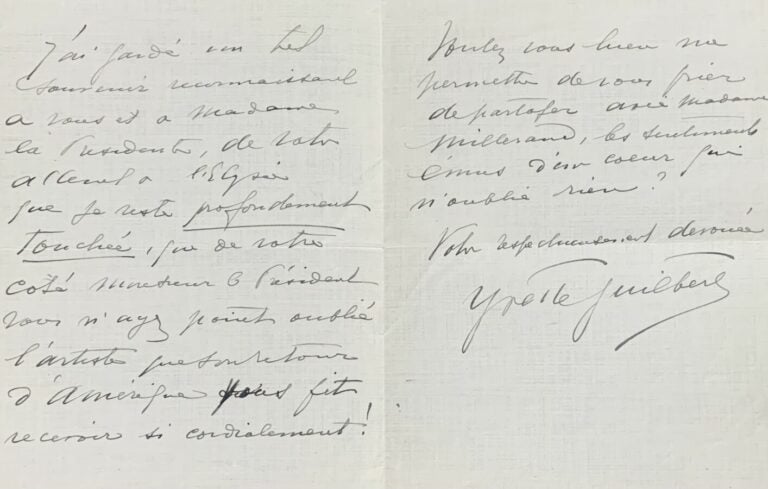 J'ai gardé un tel
souvenir reconnaissant
a vous et a madame
la Présidente, de votre
accueil a l'Elysée
que je reste profondement
touchée, que de votre
coté monsieur le Président
vous n'ayez point oublié
l'artiste que son retour
d'Amérique vous fit
recevoir si cordialement!
Voulez vous bien me
permettre de vous prier
de partager avec madame
Millerand, les sentiments
émus d'un coeur qui
n'oublie rien?
Votre respectueusement devouée
Yvette Guilbert